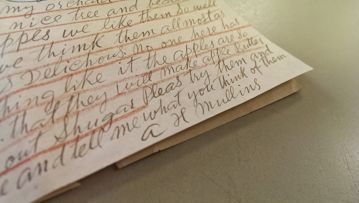 my orchard
nice tree and bear
apples we like them so well
we think them all most as
Delichous. no one here has
thing like it the apples are so
that they will make apple butter
out Shugar Pleas try them and
e and tell me what you think of them
A H Mullins